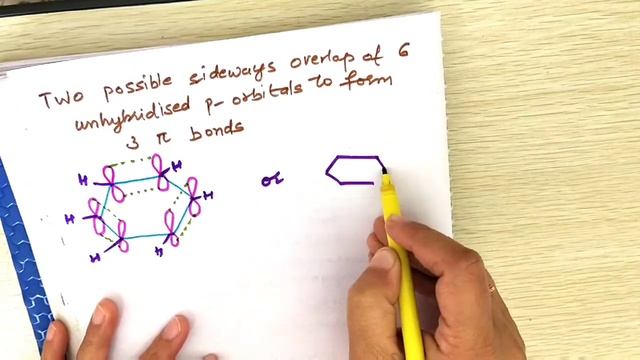 Two possible sideways overlap of 6
unhybridised p-orbitals to form
3 π bonds
H H
H or
H
H H